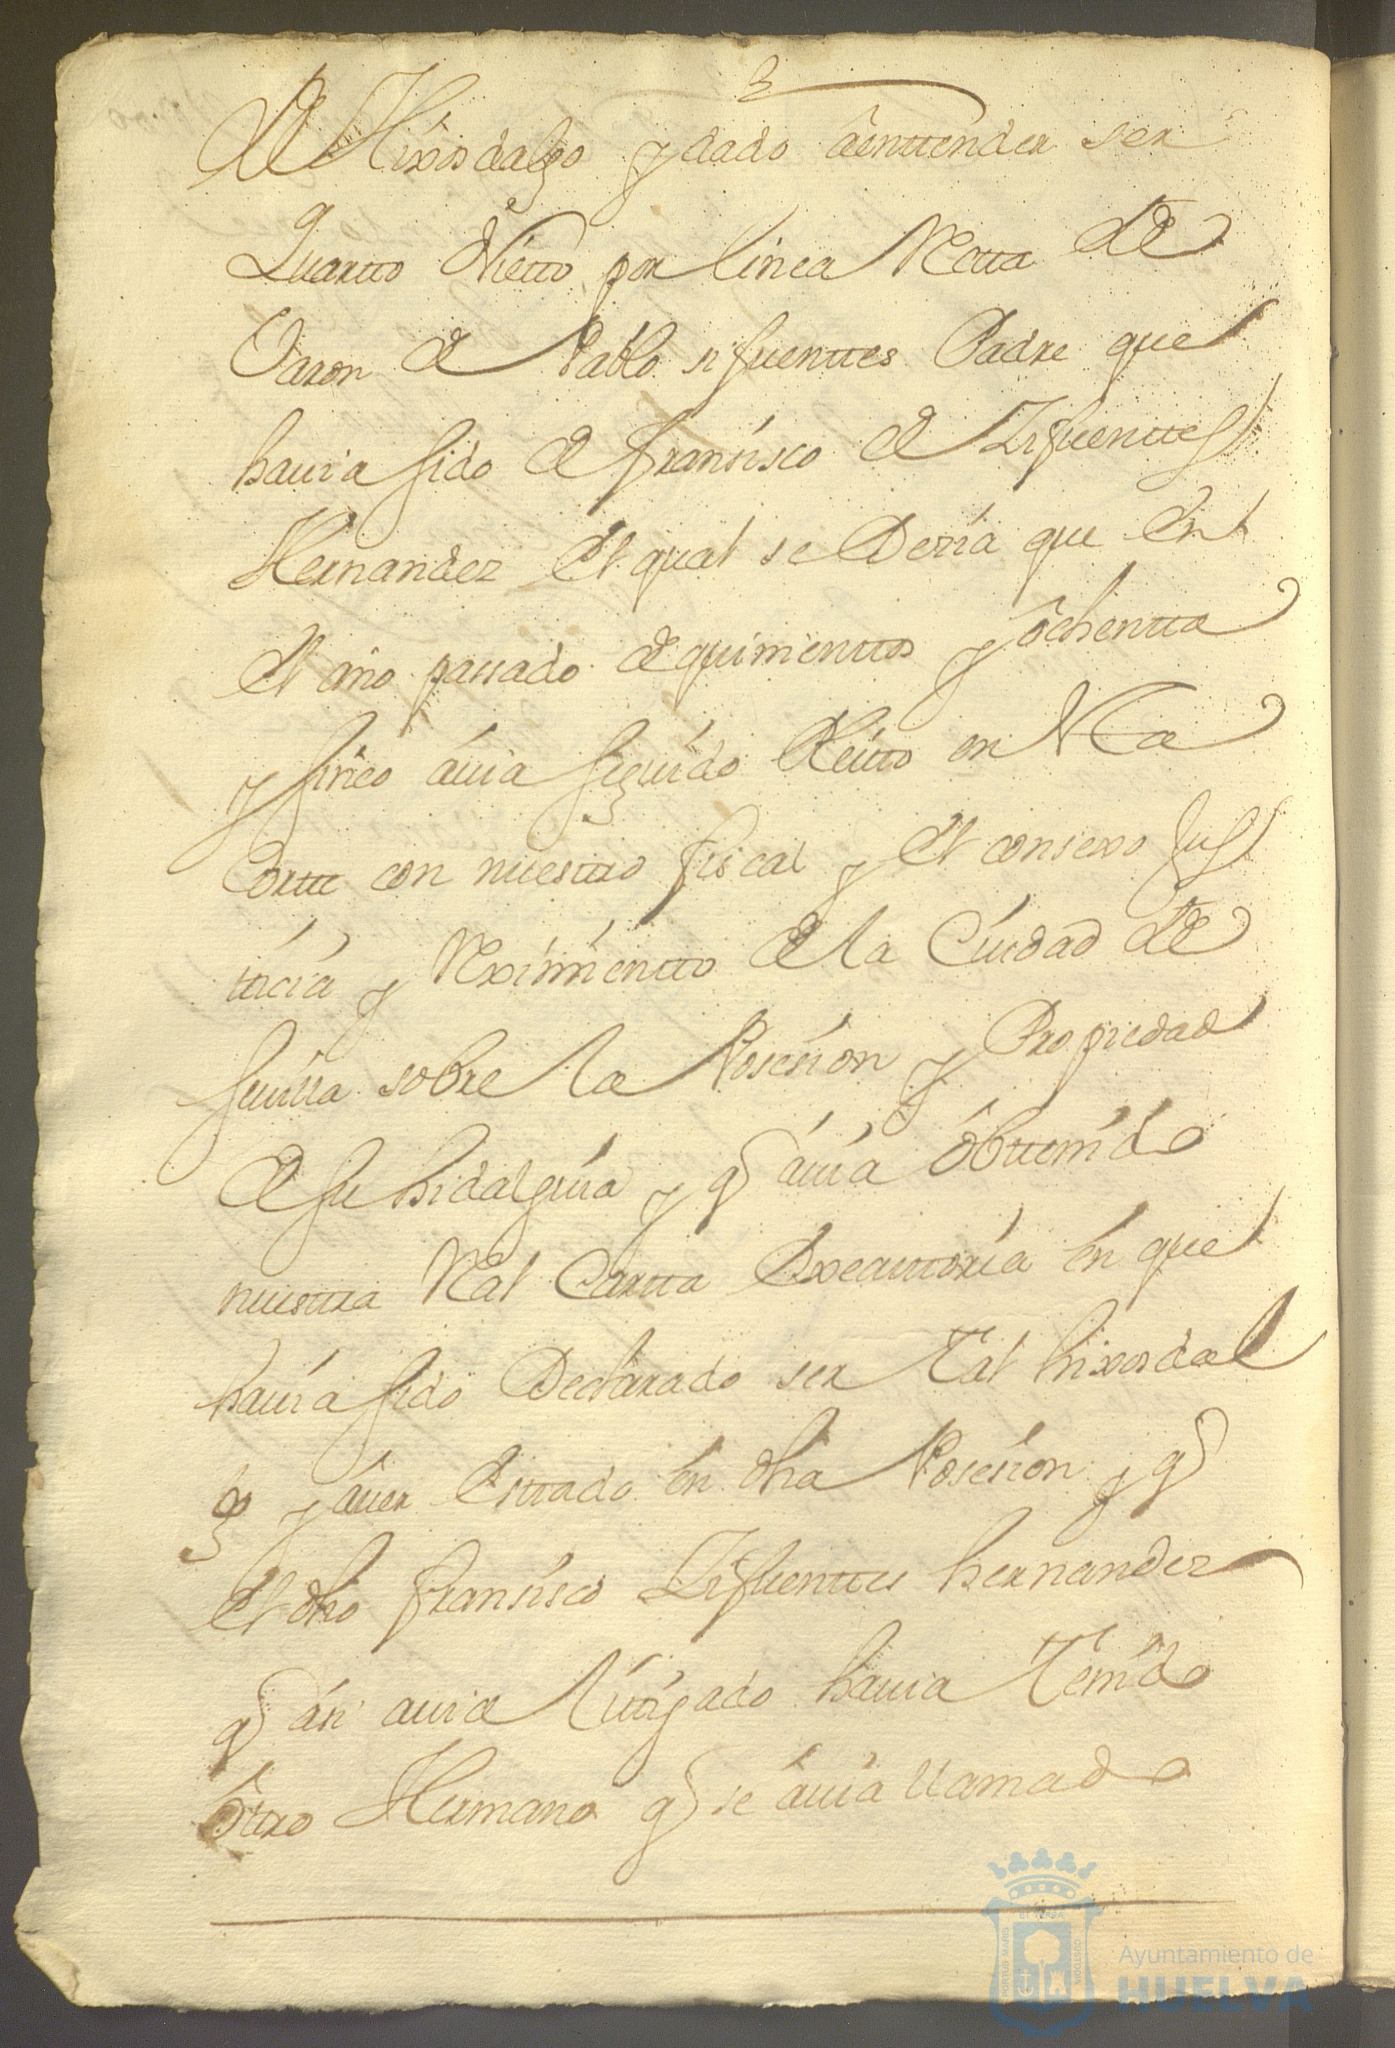 de Hixosdalgo y dado âenttender ser
Quartto Nietto por linea Rectta de
Varon de Pablo sifuenttes Padre que
hauia sido de fransisco de Zifuenttes
Hernandez el qual se Dezia que en
el año passado de quinienttos y ôchentta
y sinco áuia seguído Pleitto en Nra
Cortte con nuesttro fiscal y el consexo Jus
tticia y Reximientto de la Ciudad de
seuilla sobre la Posesíon y Propiedad
de su hidalguía y q áuía ôbttenido
nuesttra Real Cartta Executtoría en que
hauía sido Declarado ser tal hixosdal
go y áuer esttado en dha Posesíon y q
el dho fransisco Zifuenttes hernandez
q ási auia littigado hauia ttenido
ôttro Hermano q se áuia llamado
Ayuntamiento de
HUELVA